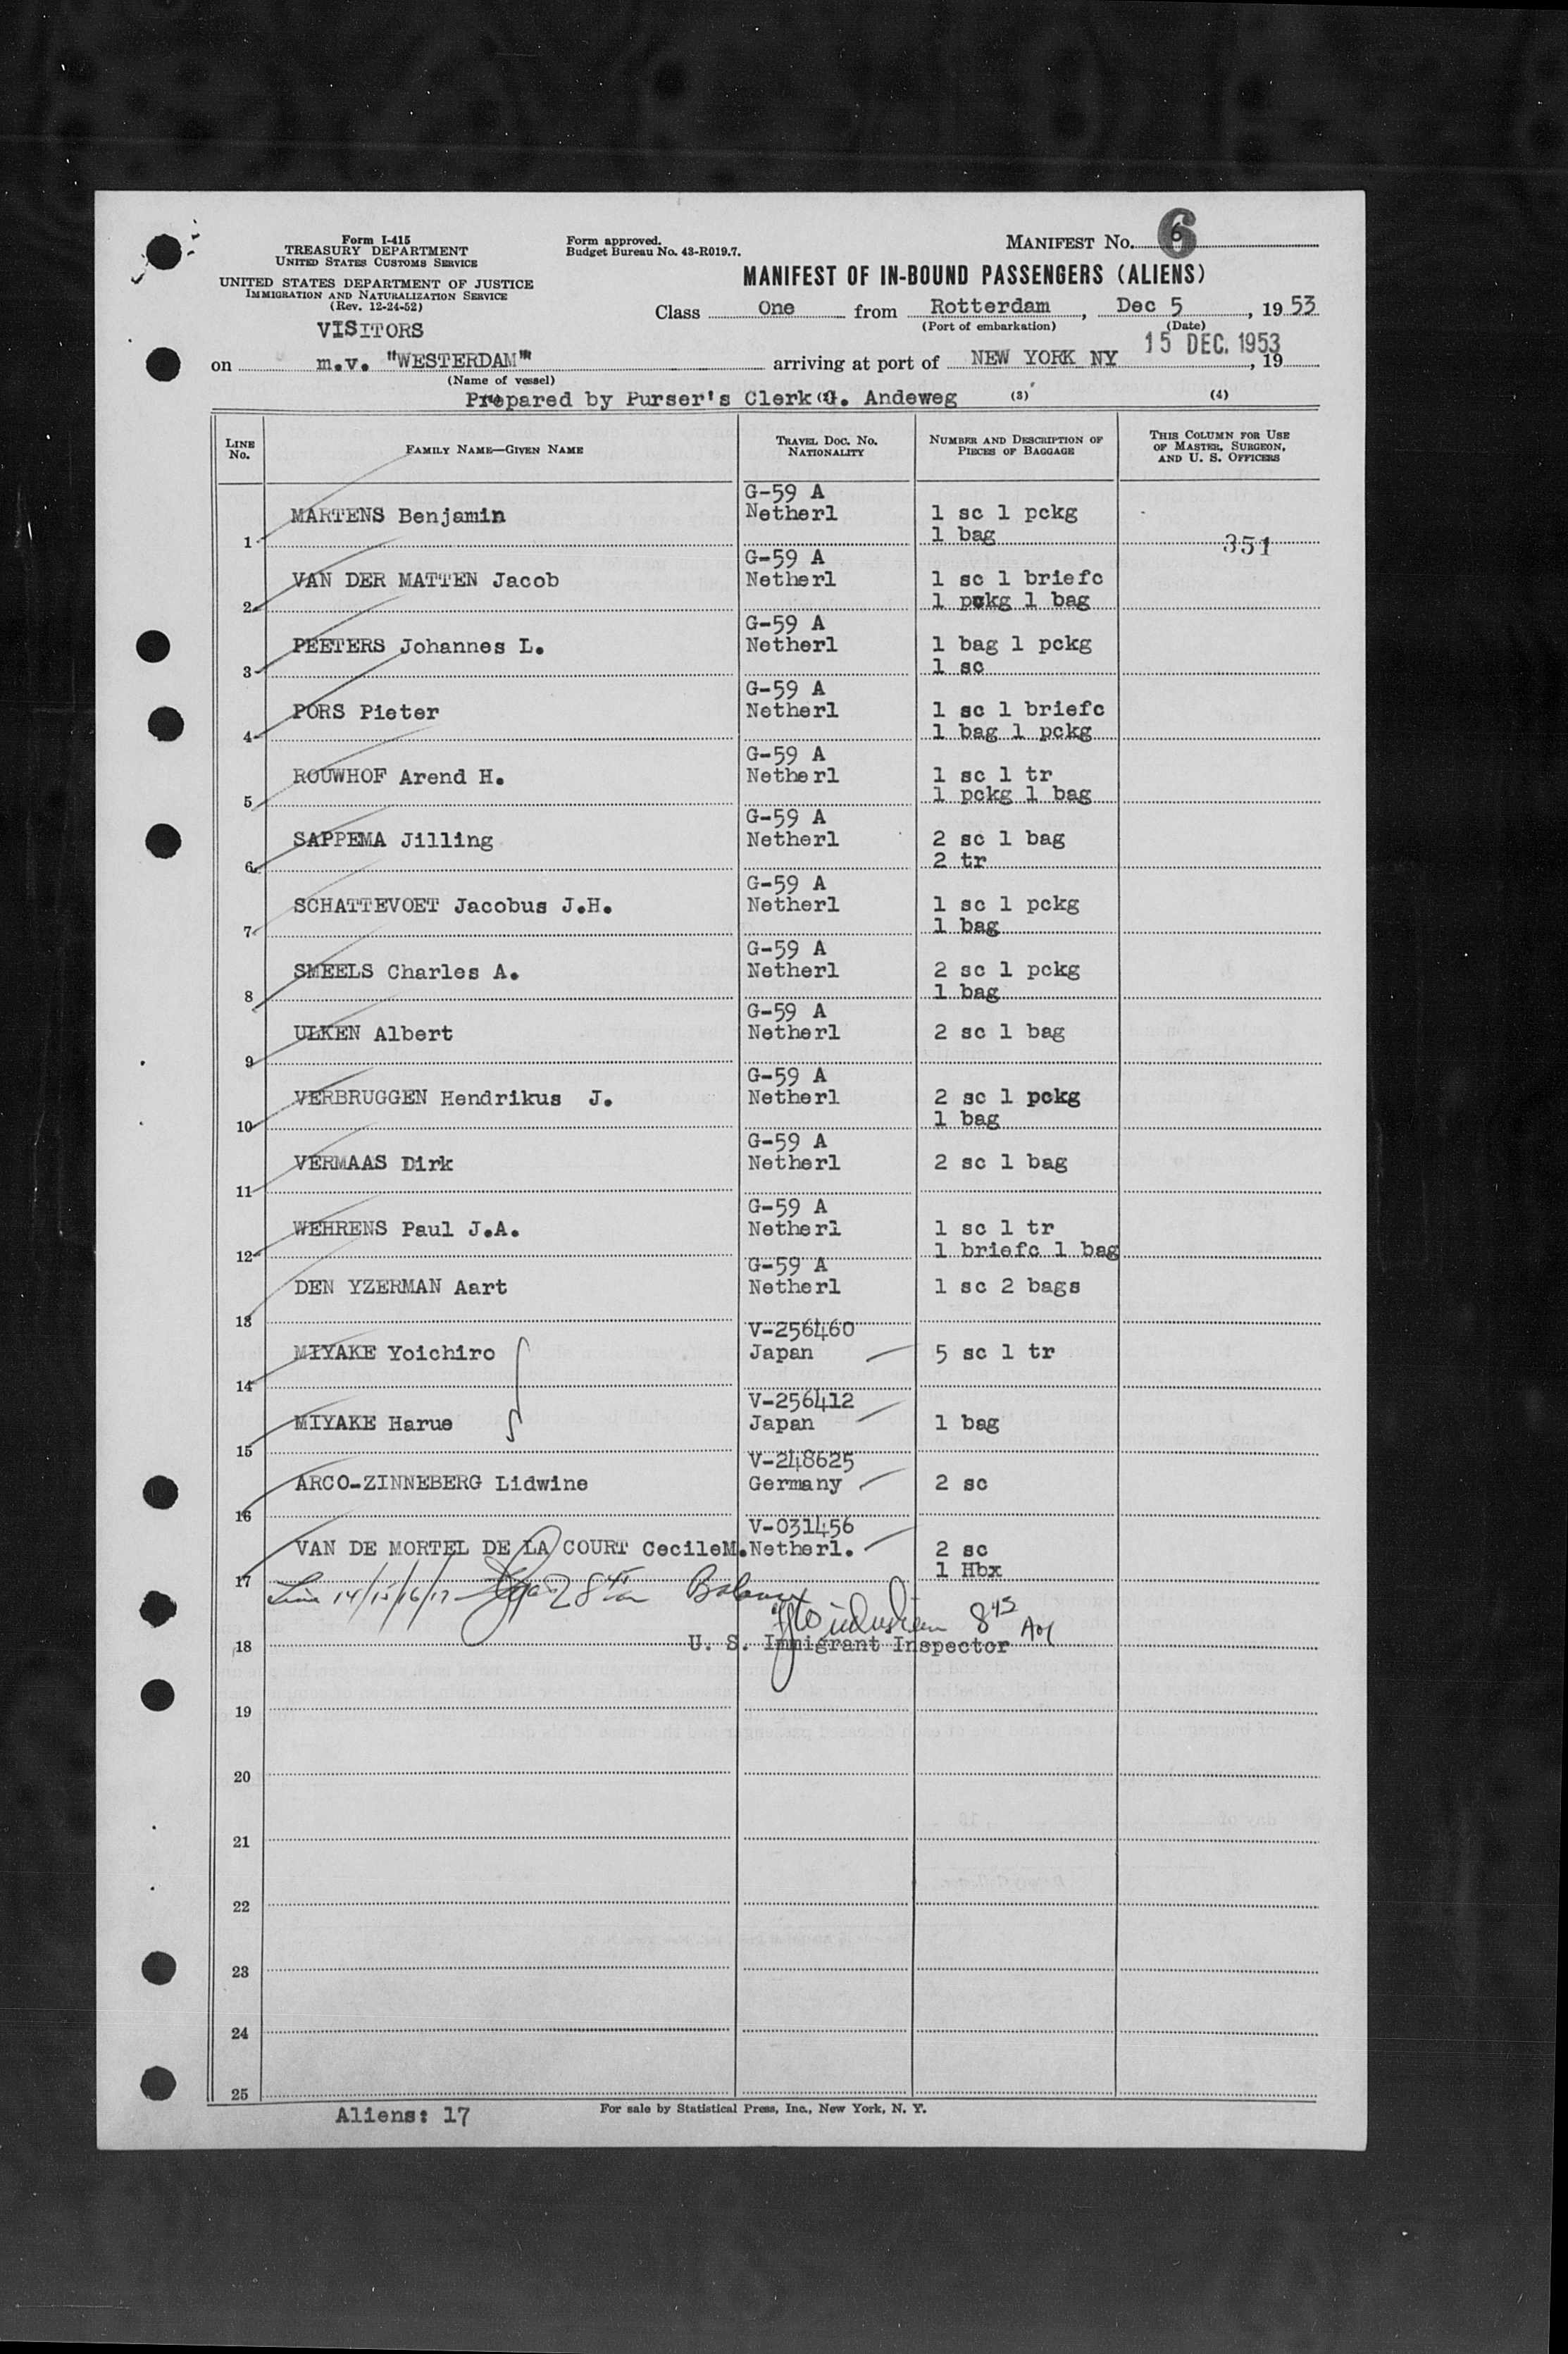 Form I-415
TREASURY DEPARTMENT
UNITED STATES CUSTOMS SERVICE
UNITED STATES DEPARTMENT OF JUSTICE
IMMIGRATION AND NATURALIZATION SERVICE
(Rev. 12-24-52)
VISITORS
Form approved.
Budget Bureau No. 43-R019.7.
MANIFEST No. 6
MANIFEST OF IN-BOUND PASSENGERS (ALIENS)
Class One from Rotterdam, Dec 5, 19 53
(Port of embarkation) (Date)
on m.v. "WESTERDAM" arriving at port of NEW YORK NY 15 DEC. 1953, 19
(Name of vessel)
Prepared by Purser's Clerk G. Andeweg (3) (4)
LINE No. FAMILY NAME—GIVEN NAME TRAVEL DOC. NO. NATIONALITY NUMBER AND DESCRIPTION OF PIECES OF BAGGAGE THIS COLUMN FOR USE OF MASTER, SURGEON, AND U. S. OFFICERS
G-59 A
MARTENS Benjamin Netherl 1 sc 1 pckg
1 1 bag 351
G-59 A
VAN DER MATTEN Jacob Netherl 1 sc 1 briefc
2 1 pckg 1 bag
G-59 A
PEETERS Johannes L. Netherl 1 bag 1 pckg
3 1 sc
G-59 A
PORS Pieter Netherl 1 sc 1 briefc
4 1 bag 1 pckg
G-59 A
ROUWHOF Arend H. Netherl 1 sc 1 tr
5 1 pckg 1 bag
G-59 A
SAPPEMA Jilling Netherl 2 sc 1 bag
6 2 tr
G-59 A
SCHATTEVOET Jacobus J.H. Netherl 1 sc 1 pckg
7 1 bag
G-59 A
SMEELS Charles A. Netherl 2 sc 1 pckg
8 1 bag
G-59 A
ULKEN Albert Netherl 2 sc 1 bag
9
G-59 A
VERBRUGGEN Hendrikus J. Netherl 2 sc 1 pckg
10 1 bag
G-59 A
VERMAAS Dirk Netherl 2 sc 1 bag
11
G-59 A
WEHRENS Paul J.A. Netherl 1 sc 1 tr
12 1 briefc 1 bag
G-59 A
DEN YZERMAN Aart Netherl 1 sc 2 bags
13
V-256460
MIYAKE Yoichiro Japan 5 sc 1 tr
14
V-256412
MIYAKE Harue Japan 1 bag
15
V-248625
ARCO-ZINNEBERG Lidwine Germany 2 sc
16
V-031456
VAN DE MORTEL DE LA COURT CecileM. Netherl. 2 sc
17 1 Hbx
Line 14/15/16/17 Balance
8 45 AM
18 U. S. Immigrant Inspector
19
20
21
22
23
24
25
Aliens: 17
For sale by Statistical Press, Inc., New York, N. Y.